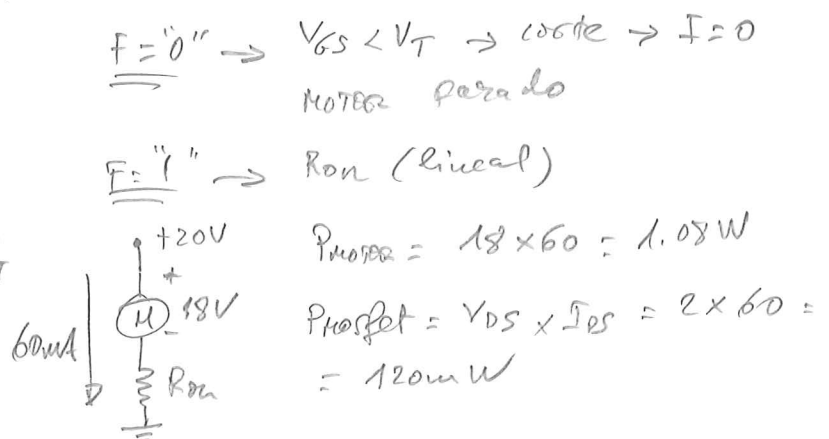 F = "0" → VGS < VT → corte → I = 0
MOTOR parado
F = "1" → Ron (lineal)
+20V
+
M 18V
-
60mA
Ron
PMOTOR = 18 x 60 = 1.08 W
PMOSfet = VDS x IDS = 2 x 60 =
= 120 mW